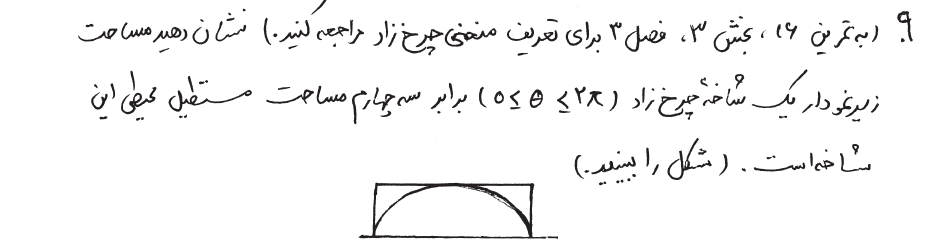 ۹. (به تمرین ۱۶، بخش ۳، فصل ۳ برای تعریف منحنی چرخ‌زاد مراجعه کنید.) نشان دهید مساحت
زیر نمودار یک شاخهٔ چرخ‌زاد (۰ ≤ θ ≤ ۲π) برابر سه چهارم مساحت مستطیل محیطی این
شاخه است. (شکل را ببینید.)